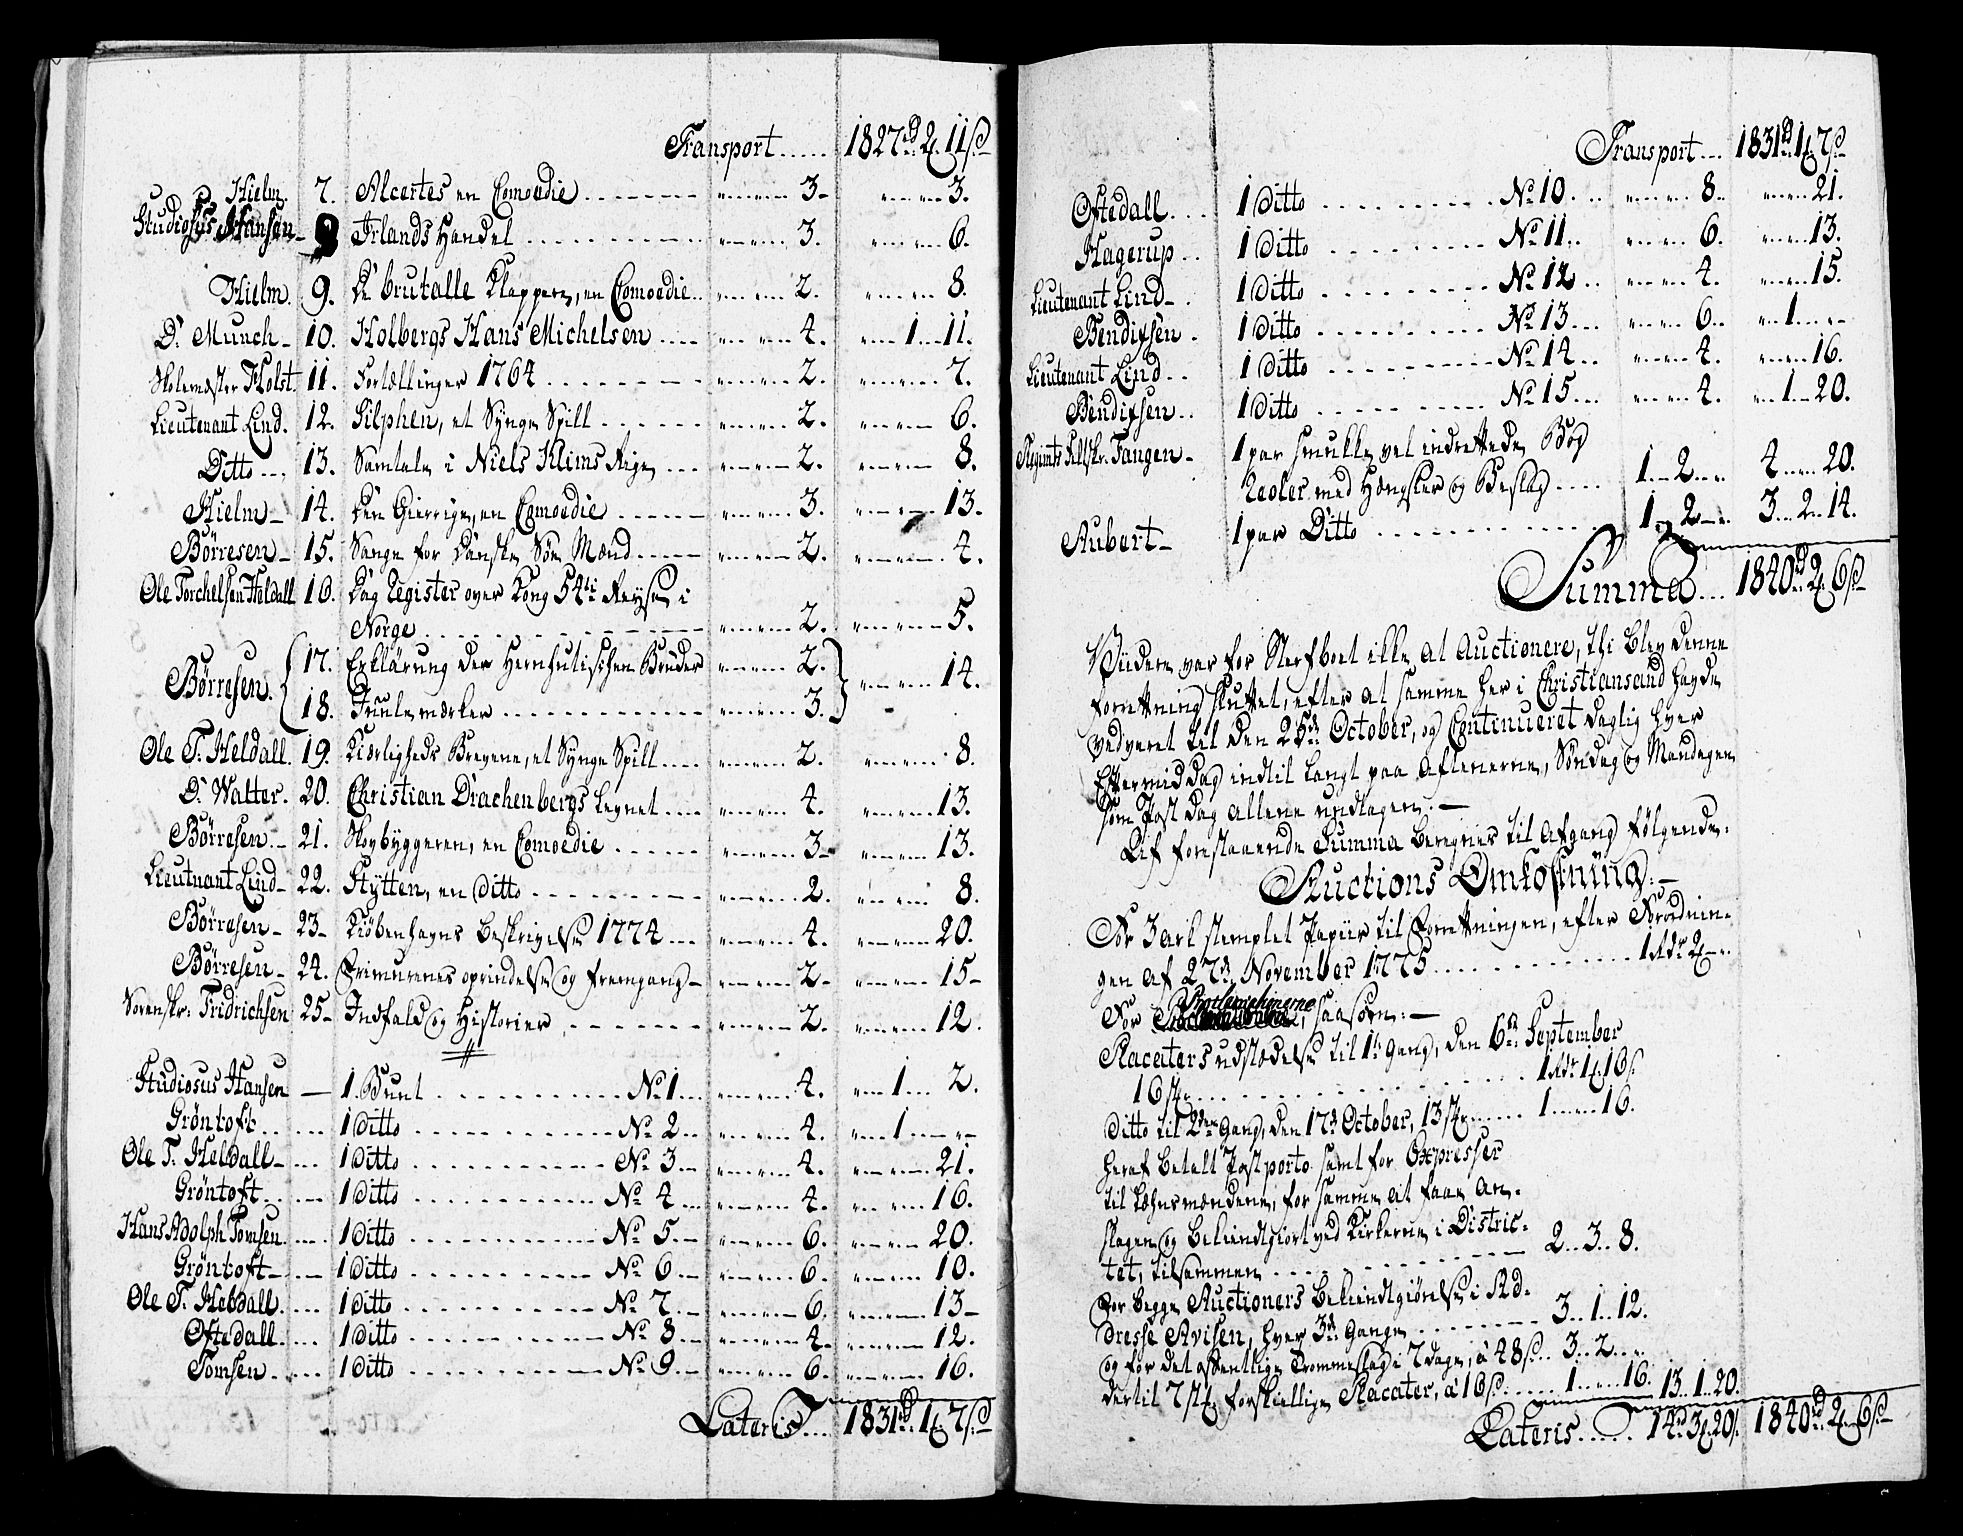 Transport..... 1827rd 2 11ß
Hielm. 7. Alcertes en Comoedie 3 - 3.
Studiosus Hansen 8 Irlands Handel 3. 6.
Hielm. 9. De brutalle Klappere, en Comoedie.. 2. 8.
Dr. Munch 10. Holbergs Hans Michelsen 4. 1 11.
Skolemester Holst 11. Fortællinger 1764 2. 7.
Lieutenant Lind. 12. Silphen, et Synge Spill 2. 6.
Ditto 13. Samtale i Niels Klims Rige 2. 8.
Hielm 14. Den Gierrige, en Comoedie 3. 13.
Börresen 15. Sange for Danske Søe Mænd 2. 4.
Ole Torchelsen Heldall 16. Dag Register over Kong 5te Reyse i
Norge 2. 5.
Börresen. 17. Erklärung der Hernhutischen Brüder 2.
14.
18. Juule mærker 3.
Ole T. Heldall. 19. Kierligheds Brevene, et Synge Spill 2. 8.
Dr. Walter. 20. Christian Drachenbergs Levnet 4. 13.
Börresen. 21. Skovbyggeren, en Comoedie 3 13.
Lieutnant Lind 22. Støtten, en ditto 2. 8.
Börresen 23 Kiøbenhavns Beskrivelse 1774 4. 20.
Börresen 24. Frimurenes oprindelse og fremgang 2. 15
Sorenskr: Fridrichsen 25 Indfald og Historier 2. 12.
Studiosus Hansen 1 Bunt No. 1 4. 1 2.
Gröntoft 1 Ditto No. 2 4. 1
Ole T. Heldall 1 Ditto No. 3 4. 21.
Gröntoft 1 Ditto No. 4 4. 16.
Hans Adolph Tomsen 1 Ditto No. 5 6. 20.
Gröntoft 1 Ditto No. 6 6. 10.
Ole T. Heldall. 1 Ditto No. 7 6. 13
Oftedall. 1 Ditto No. 8 4. 12.
Tomsen 1 Ditto No. 9 6. 16.
Lateris.... 1831rd 1 7ß
Transport... 1831rd 1 7ß
Oftedall 1 Ditto No. 10. 8. 21.
Hagerup 1 Ditto No. 11. 6. 13.
Lieutenant Lind 1 Ditto No. 12 4. 15.
Bendixsen 1 Ditto No. 13 6. 1
Lieutenant Lind 1 Ditto No. 14 4. 16.
Bendixsen 1 Ditto No. 15 4. 1 20.
Regimts Feltskr. Fangen 1 par smukke vel indrettede Bog
Reoler med Hængsler og Beslag 1 2 4 20.
Aubert 1 par Ditto 1 2 3 2 14.
Summa.... 1840rd 2 6ß
Viidere var for Sterfboet ikke at Auctionere, thi blev denne
forretning sluttet, efter at samme her i Christiansand havde
vedvaret til den 25de October, og Continueret daglig hver
Eftermiddag indtil langt paa Aftenerne, Søndag og Mandagen
som Post dag allene undtagen.
Af forestaaende Summa beregnes til Afgang følgende:
Auctions Omkostning:
For 3 ark stemplet Papiir til Forretningen, efter Forordnin-
gen af 27de November 1775 1 Rdr 2
For Proclamationerne, saasom:
Placaters udstædelse til 1te Gang, den 6te September
16 stk. 1 Rdr 1 16ß
Ditto til 2den Gang, den 17de October, 13 stk. 1 16.
heraf betalt Postporto samt for Expresser
til Lehnsmændene, for samme at faae an-
slagen og bekiendtgiort ved Kirkerne i Distric-
tet, tilsammen 2.. 3.. 8.
For begge Auctioners bekiendtgiørelse i Ad-
dresse Avisen, hver 3de Gange 3.. 1.. 12.
og for det offentlige Trommeslag i 7 dage, à 48ß... 3.. 2..
dertil 7 stk. forskiellige Placater, à 16ß 1 16. 13.. 1.. 20.
Lateris..... 14rd 3 20ß 1840rd 2 6ß